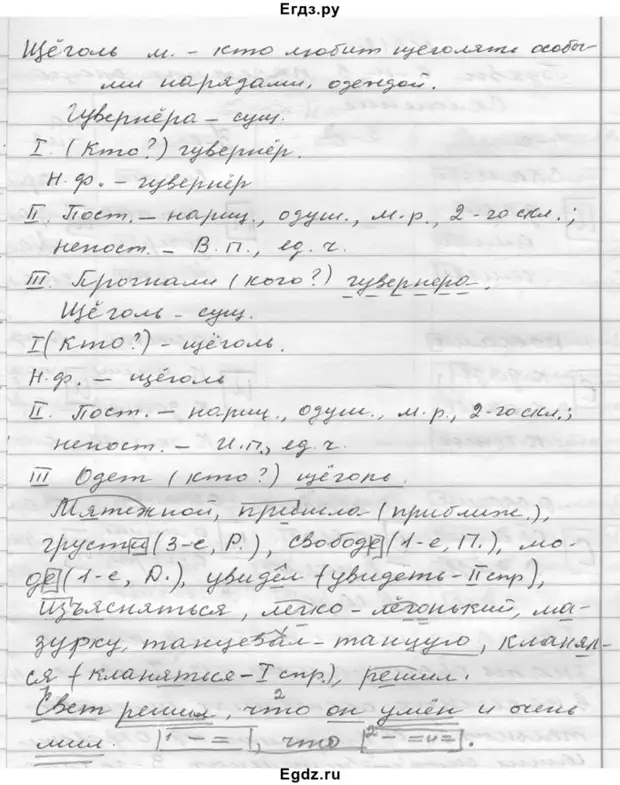 Егдз.ру
Щёголь м. - кто любит щеголять особы-
ми нарядами, одеждой.
Гувернёра - сущ.
I. (Кто?) гувернёр.
Н.ф. - гувернёр
II. Пост. - нариц., одуш., м.р., 2-го скл.;
непост. - В.п., ед.ч.
III. Прогнали (кого?) гувернера.
Щёголь - сущ.
I (Кто?) - щёголь.
Н.ф. - щёголь
II. Пост. - нариц., одуш., м.р., 2-го скл.;
непост. - И.п., ед.ч.
III Одет (кто?) щёголь.
Мятежной, пришла (приближ.),
грусти (3-е, Р.), свободе (1-е, П.), мо-
де (1-е, Д.), увидел (увидеть - II спр),
изъясняться, легко - лёгонький, ма-
зурку, танцевал - танцую, кланял-
ся (кланяться - I спр.), решил.
Свет решил, что 2 он умён и очень
мил. [1 - =], что [2 - = и =].
Egdz.ru